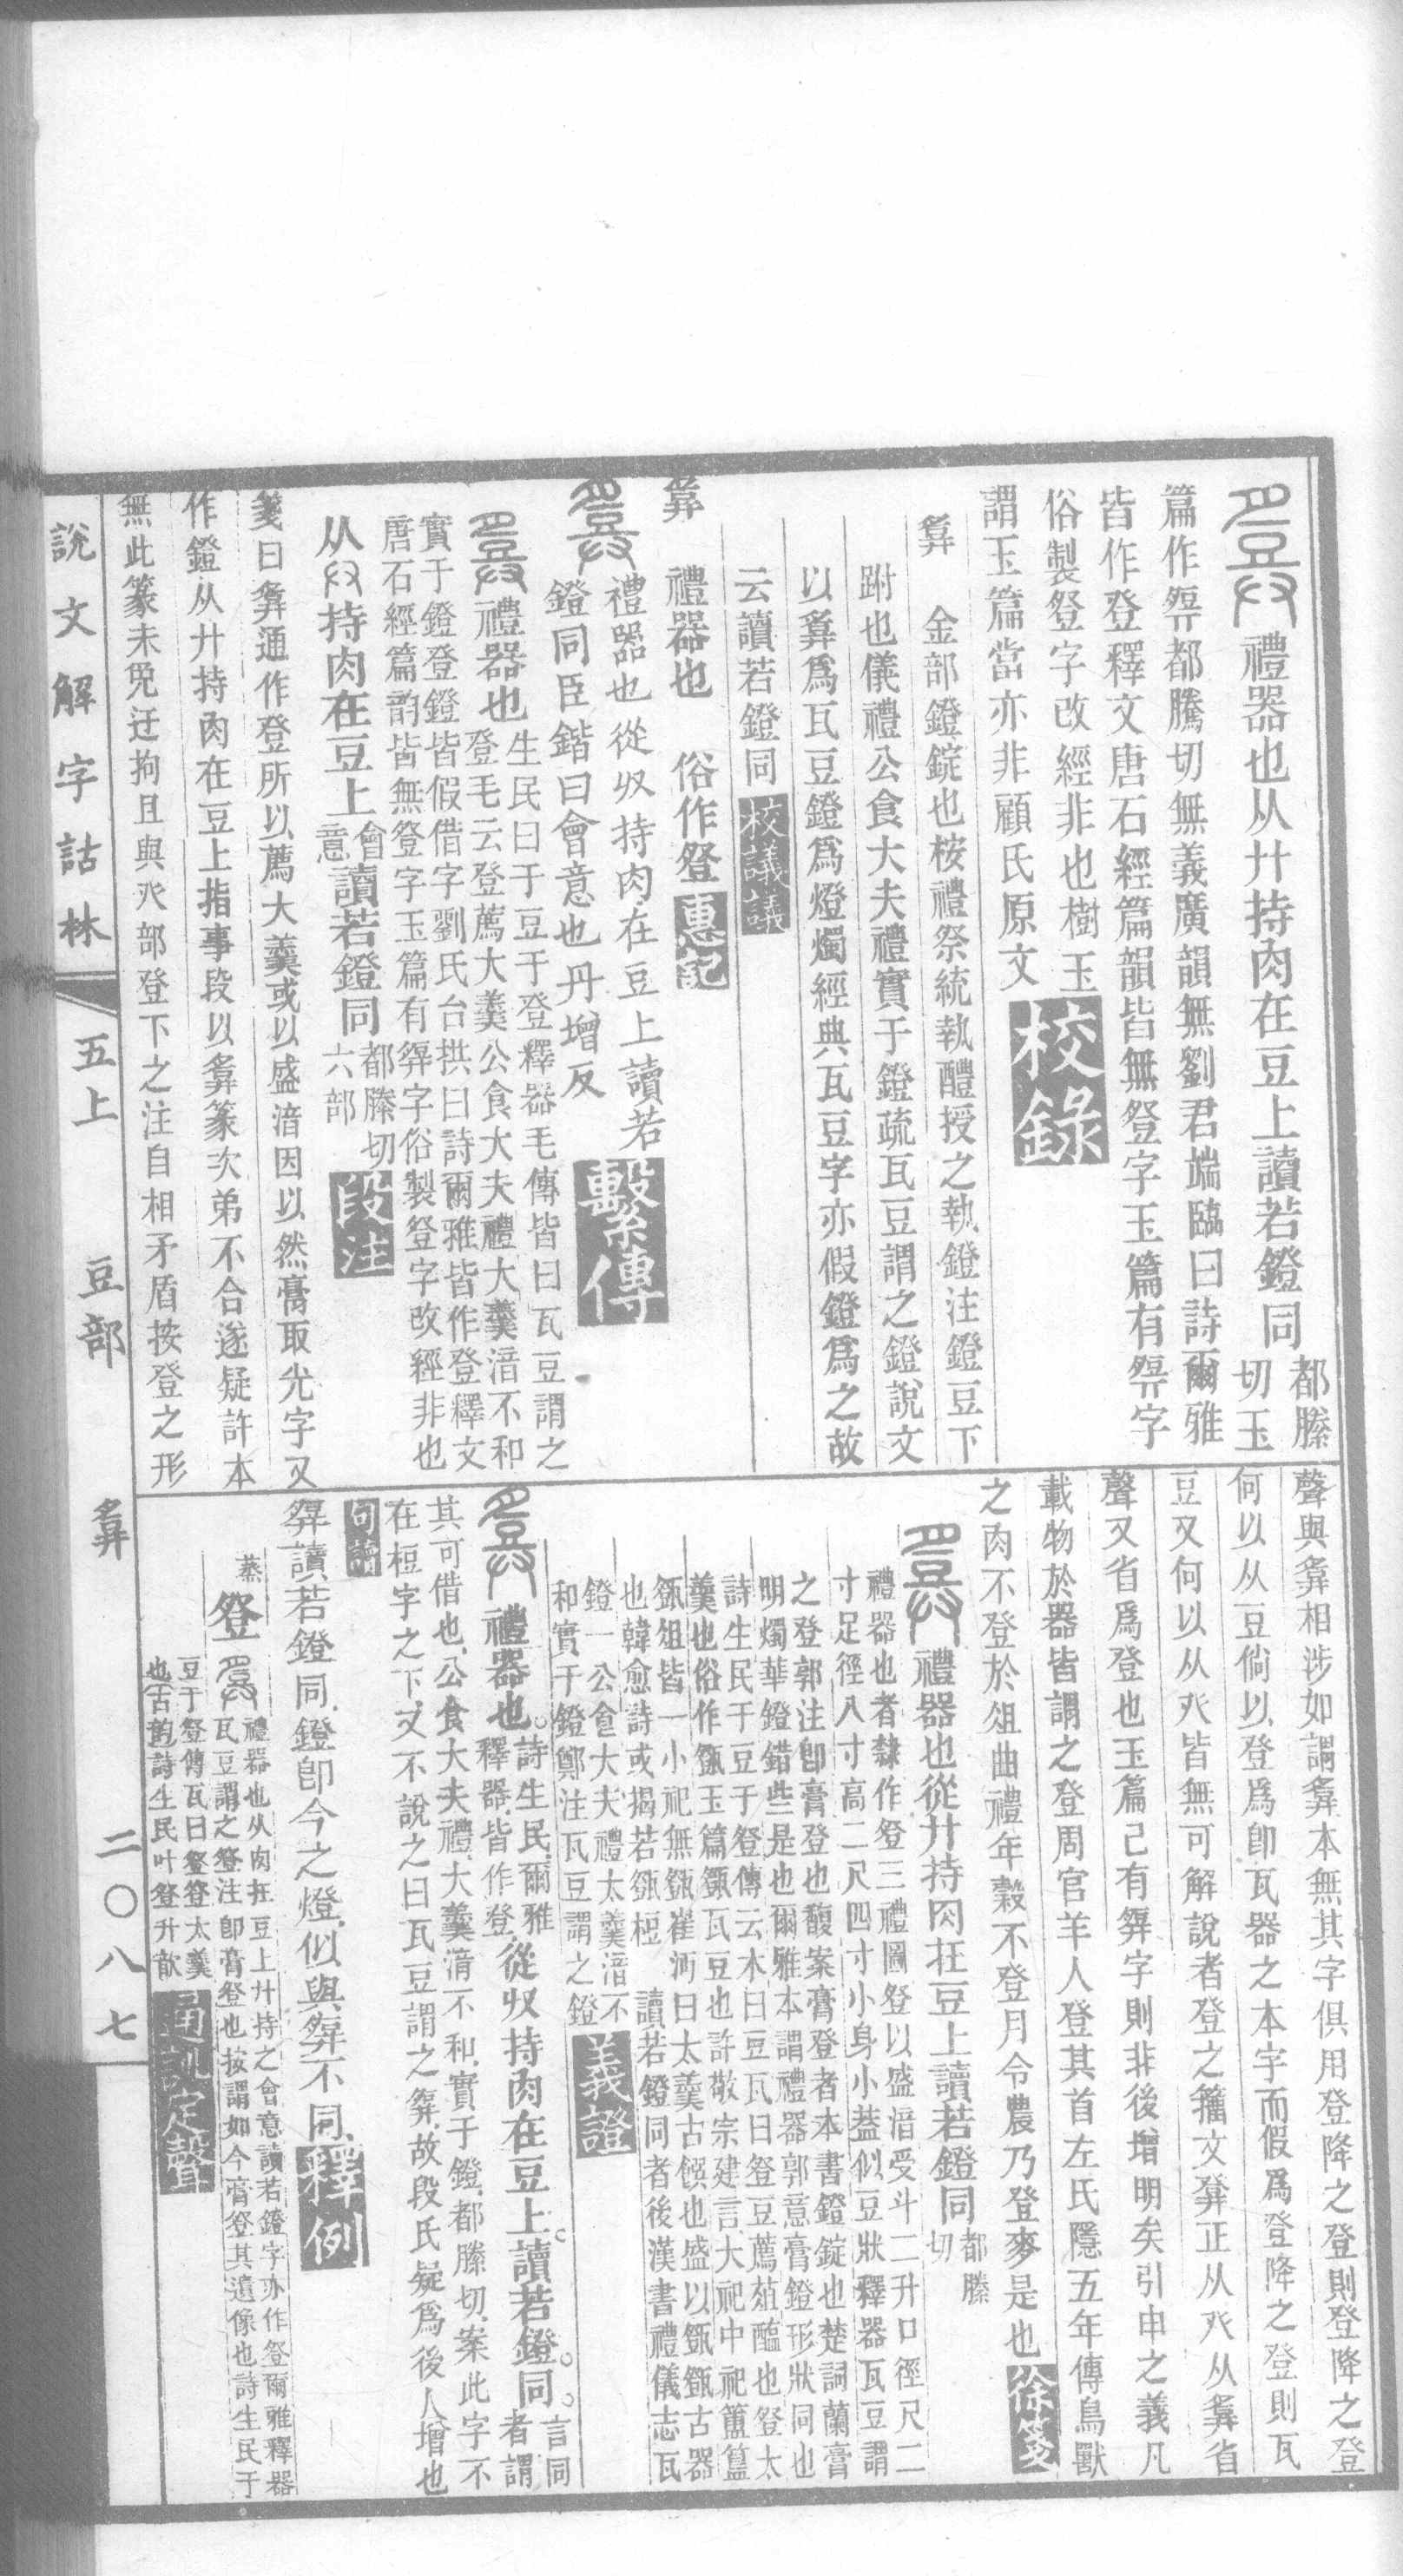 禮器也从廾持肉在豆上讀若鐙同都滕切玉
篇作𢍪都騰切無義廣韻無劉君端臨曰詩爾雅
皆作登釋文唐石經篇韻皆無豋字玉篇有𢍪字
俗製豋字改經非也樹玉
謂玉篇當亦非顧氏原文校錄
𤼷 金部鐙錠也桉禮祭統執醴授之執鐙注鐙豆下
跗也儀禮公食大夫禮實于鐙疏瓦豆謂之鐙說文
以𤼷爲瓦豆鐙爲燈燭經典瓦豆字亦假鐙爲之故
云讀若鐙同校議議
𤼷 禮器也 俗作豋惠記
禮器也從収持肉在豆上讀若
鐙同臣鍇曰會意也丹增反繫傳
禮器也生民曰于豆于登釋器毛傳皆曰瓦豆謂之
登毛云登薦大羹公食大夫禮大羹湆不和
實于鐙登鐙皆假借字劉氏台拱曰詩爾雅皆作登釋文
唐石經篇韵皆無豋字玉篇有𢍪字俗製豋字改經非也
从収持肉在豆上會意讀若鐙同都滕切六部段注
箋曰𤼷通作登所以薦大羹或以盛湆因以然膏取光字又
作鐙从廾持肉在豆上指事段以𤼷篆次弟不合遂疑許本
無此篆未免迂拘且與癶部登下之注自相矛盾按登之形
聲與𤼷相涉如謂𤼷本無其字俱用登降之登則登降之登
何以从豆倘以登爲卽瓦器之本字而假爲登降之登則瓦
豆又何以从癶皆無可解說者登之籒文𤼷正从癶从𤼷省
聲又省爲登也玉篇已有𢍪字則非後增明矣引申之義凡
載物於器皆謂之登周官羊人登其首左氏隱五年傳鳥獸
之肉不登於俎曲禮年穀不登月令農乃登麥是也徐箋
禮器也從廾持肉在豆上讀若鐙同都滕切
禮器也者隸作豋三禮圖豋以盛湆受斗二升口徑尺二
寸足徑八寸高二尺四寸小身小葢似豆狀釋器瓦豆謂
之登郭注卽膏登也馥案膏登者本書鐙錠也楚詞蘭膏
明燭華鐙錯些是也爾雅本謂禮器郭意膏鐙形狀同也
詩生民于豆于豋傳云木曰豆瓦曰豋豆薦葅醢也豋太
羹也俗作㽅玉篇㽅瓦豆也許敬宗建言大祀中祀簠簋
㽅俎皆一小祀無㽅崔沔曰太羹古饌也盛以㽅㽅古器
也韓愈詩或揭若㽅桓 讀若鐙同者後漢書禮儀志瓦
鐙一 公食大夫禮太羹湆不
和實于鐙鄭注瓦豆謂之鐙義證
禮器也。詩生民爾雅釋器皆作登從収持肉在豆上。讀若鐙同。言同者謂
其可借也公食大夫禮大羹湆不和實于鐙都滕切案此字不
在梪字之下又不說之曰瓦豆謂之𢍪故段氏疑爲後人增也
句讀
𢍪讀若鐙同鐙卽今之燈似與𢍪不同釋例
蒸
豋 禮器也从肉在豆上廾持之會意讀若鐙字亦作豋爾雅釋器
瓦豆謂之豋注卽膏豋也按謂如今膏豋其遺像也詩生民于
豆于豋傳瓦曰豋豋太羹
也〔古韵〕詩生民叶豋升歆通訓定聲
說文解字詁林 五上 豆部 𤼷 二〇八七